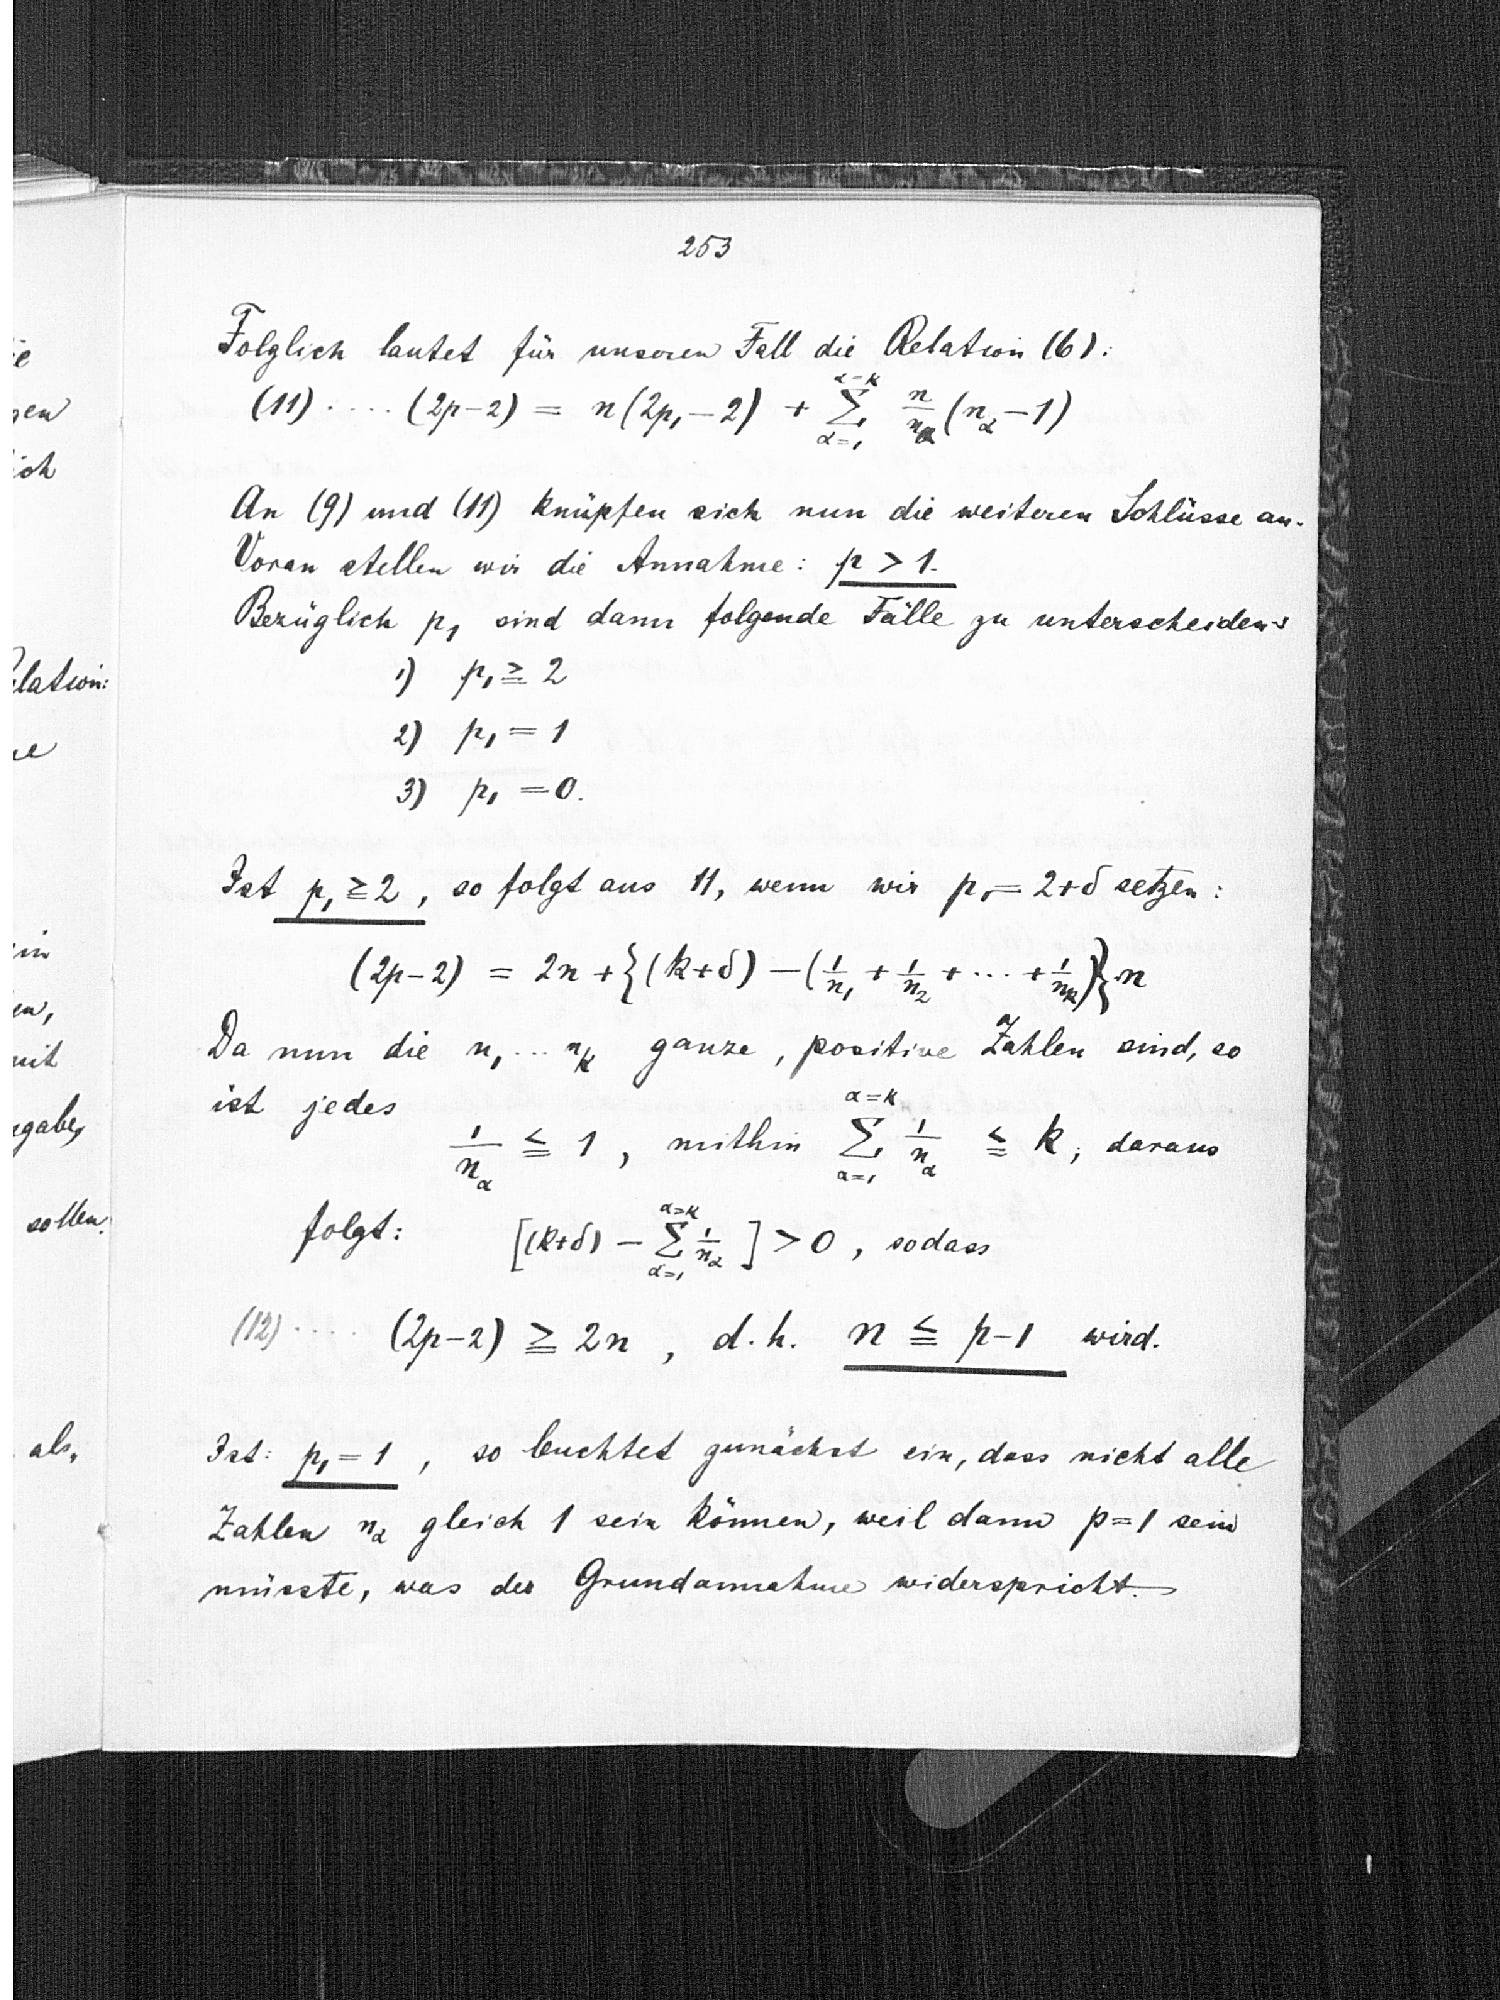 253
Folglich lautet für unseren Fall die Relation (6):
(11) ..... (2p-2) = n(2p₁-2) + Σ_{α=1}^{α=k} n/n_α (n_α-1)
An (9) und (11) knüpfen sich nun die weiteren Schlüsse an.
Voran stellen wir die Annahme: p > 1.
Bezüglich p₁ sind dann folgende Fälle zu unterscheiden:
1) p₁ ≧ 2
2) p₁ = 1
3) p₁ = 0.
Ist p₁ ≧ 2, so folgt aus 11, wenn wir p₁ = 2+δ setzen:
(2p-2) = 2n + {(k+δ) - (1/n₁ + 1/n₂ + ... + 1/n_k)}·n
Da nun die n₁ ... n_k ganze, positive Zahlen sind, so
ist jedes
1/n_α ≦ 1, mithin Σ_{α=1}^{α=k} 1/n_α ≦ k; daraus
folgt: [(k+δ) - Σ_{α=1}^{α=k} 1/n_α] > 0, sodass
(12) ..... (2p-2) ≧ 2n, d.h. n ≦ p-1 wird.
Ist: p₁ = 1, so leuchtet zunächst ein, dass nicht alle
Zahlen n_α gleich 1 sein können, weil dann p=1 sein
müsste, was der Grundannahme widerspricht.
ie
gen
ich
elation:
ne
in
en,
mit
ngabe,
sollen.
als,